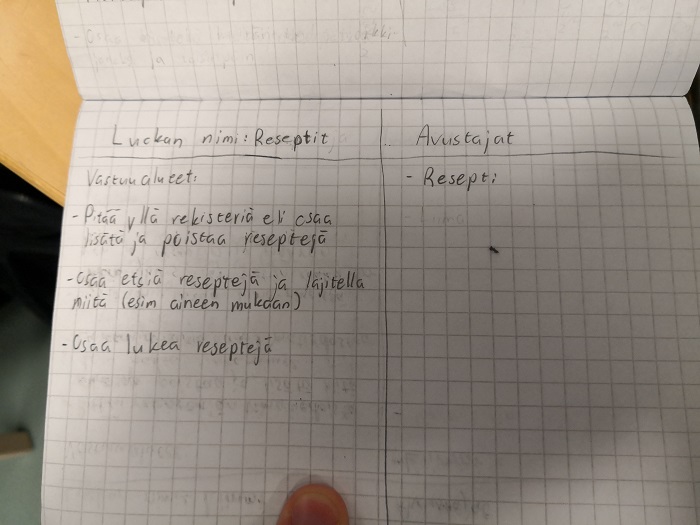 Luokan nimi: Reseptit
Avustajat
Vastuualueet:
- Pitää yllä rekisteriä eli osaa
lisätä ja poistaa reseptejä
- Osaa etsiä reseptejä ja lajitella
niitä (esim aineen mukaan)
- Osaa lukea reseptejä
- Resepti